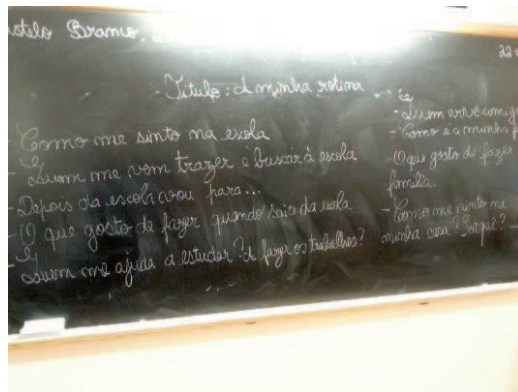 stelo Branco, 2
22
- Título: A minha rotina
- Como me sinto na escola
- Quem me vem trazer e buscar à escola
- Depois da escola vou para...
- O que gosto de fazer quando saio da escola
- Quem me ajuda a estudar? A fazer os trabalhos?
- Quem vive comig
- Como é a minha f
- O que gosto de fazer
família.
- Como me sinto na
minha casa? Porquê? -